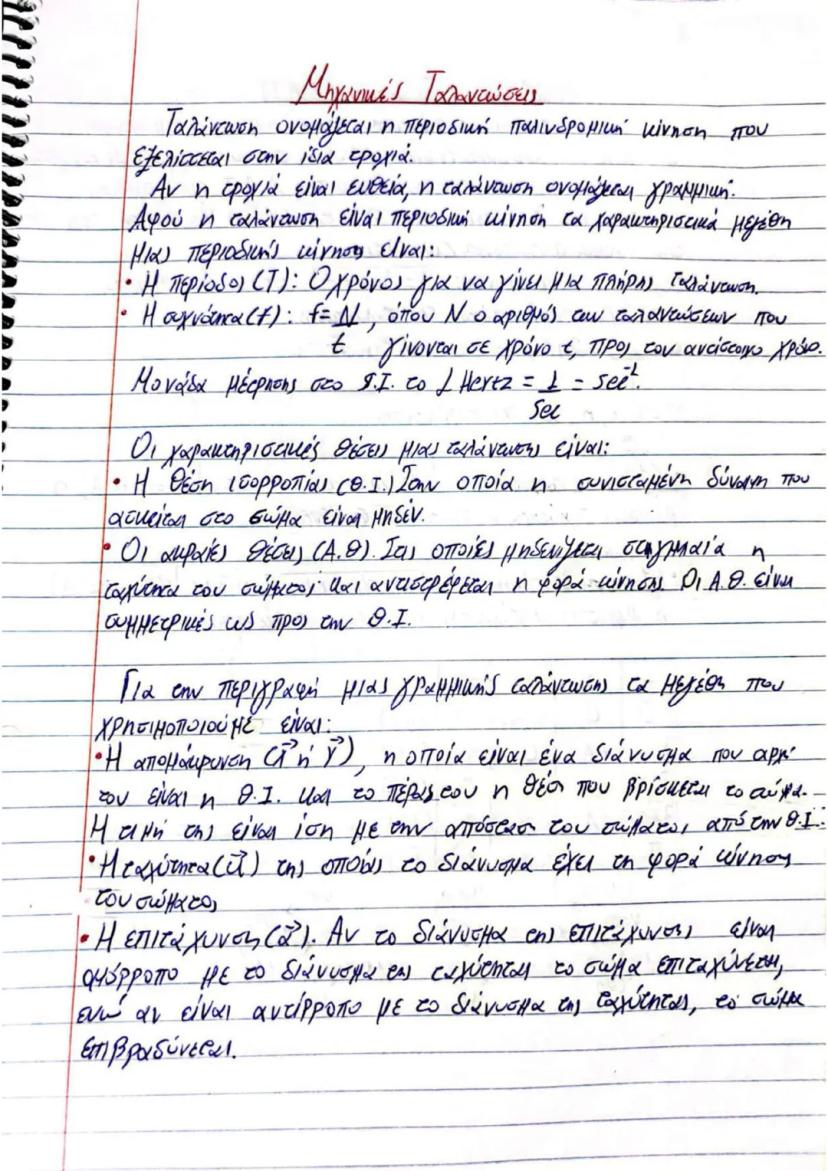 Μηχανικές Ταλαντώσεις
Ταλάντωση ονομάζεται η περιοδική παλινδρομική κίνηση που
εξελίσσεται στην ίδια τροχιά.
Αν η τροχιά είναι ευθεία, η ταλάντωση ονομάζεται γραμμική.
Αφού η ταλάντωση είναι περιοδική κίνηση τα χαρακτηριστικά μεγέθη
μιας περιοδικής κίνησης είναι:
• Η περίοδος (T): Ο χρόνος για να γίνει μια πλήρης ταλάντωση.
• Η συχνότητα (f): f = N/t, όπου N ο αριθμός των ταλαντώσεων που
γίνονται σε χρόνο t, προς τον αντίστοιχο χρόνο.
Μονάδα μέτρησης στο S.I. το 1 Hertz = 1/sec = sec⁻¹.
Οι χαρακτηριστικές θέσεις μιας ταλάντωσης είναι:
• Η θέση ισορροπίας (Θ.Ι.) Στην οποία η συνισταμένη δύναμη που
ασκείται στο σώμα είναι μηδέν.
• Οι ακραίες θέσεις (Α.Θ). Στις οποίες μηδενίζεται στιγμιαία η
ταχύτητα του σώματος και αντιστρέφεται η φορά κίνησης. Οι Α.Θ. είναι
συμμετρικές ως προς την Θ.Ι.
Για την περιγραφή μιας γραμμικής ταλάντωσης τα μεγέθη που
χρησιμοποιούμε είναι:
• Η απομάκρυνση (x⃗ ή y⃗), η οποία είναι ένα διάνυσμα που αρχή
του είναι η Θ.Ι. και το πέρας του η θέση που βρίσκεται το σώμα.
Η τιμή της είναι ίση με την απόσταση του σώματος από την Θ.Ι.
• Η ταχύτητα (u⃗) της οποίας το διάνυσμα έχει τη φορά κίνησης
του σώματος
• Η επιτάχυνση (α⃗). Αν το διάνυσμα της επιτάχυνσης είναι
ομόρροπο με το διάνυσμα της ταχύτητας το σώμα επιταχύνεται,
ενώ αν είναι αντίρροπο με το διάνυσμα της ταχύτητας, το σώμα
επιβραδύνεται.